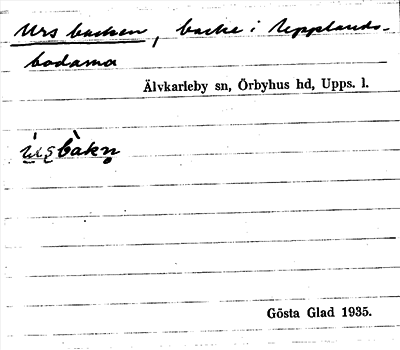 Urs backen, backe i Upplands-
bodarna
Älvkarleby sn, Örbyhus hd, Upps. l.
Gösta Glad 1935.